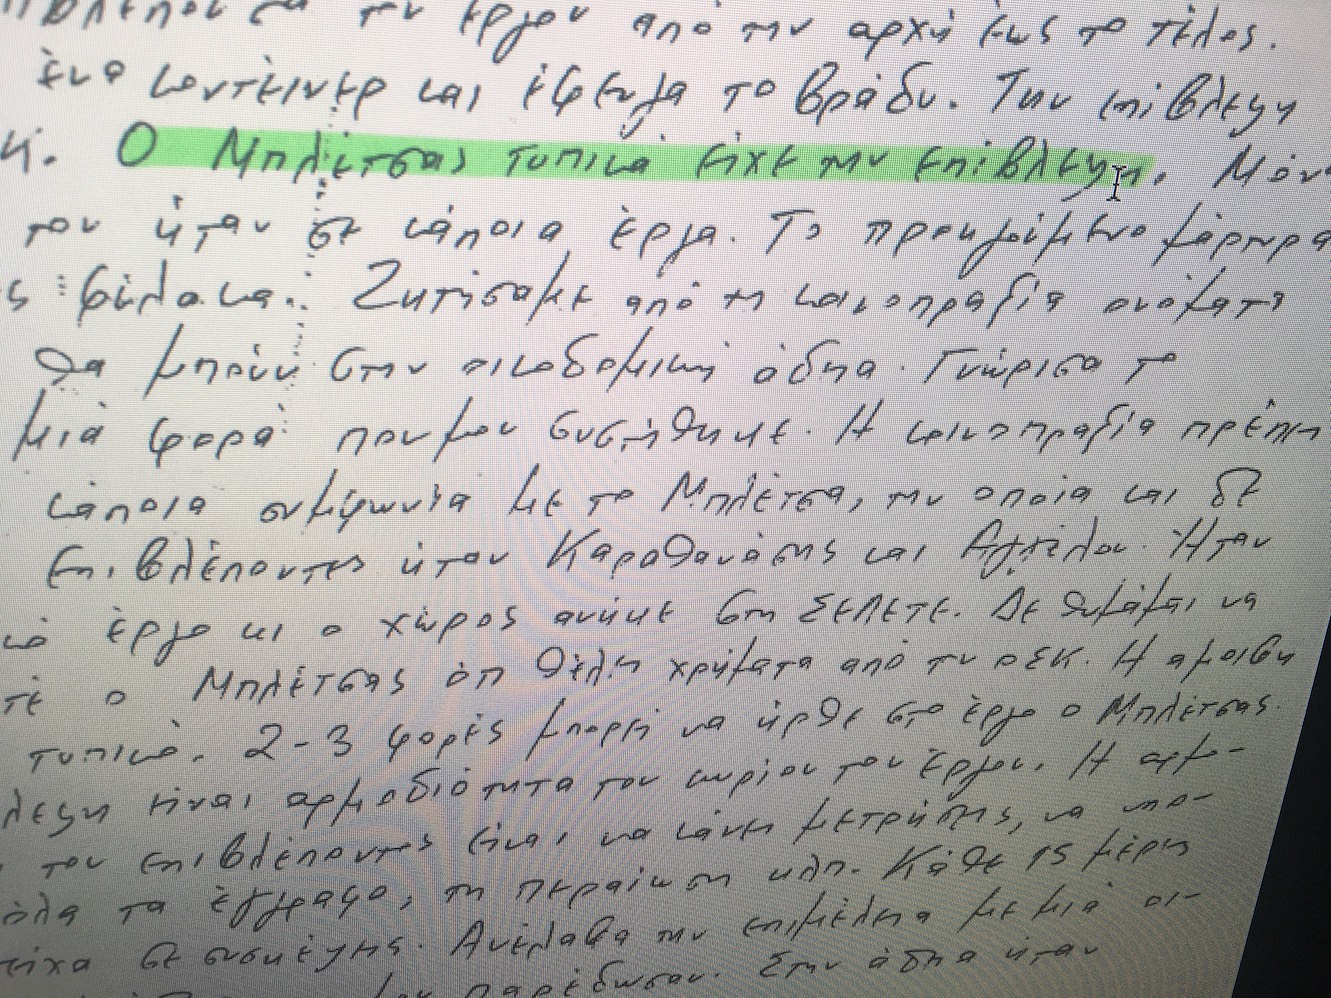 του έργου από την αρχή έως το τέλος.
ένα κοντέινερ και έφευγα το βράδυ. Την επίβλεψη
Ο Μπλέτσας τυπικά είχε την επίβλεψη. Μόν
του ήταν σε κάποια έργα. Το προηγούμενο μάρτυρα
ς φύλακα. Ζητήσαμε από τη κοινοπραξία ονόματα
θα μπούν στην οικοδομική άδεια. Γνώρισα το
μιά φορά που μου συστήθηκε. Η κοινοπραξία πρέπει
κάποια συμφωνία με το Μπλέτσα, την οποία και δε
Επιβλέποντες ήταν Καραθανάσης και Αγγέλου. Ήταν
κό έργο κι ο χώρος ανήκε στη ΣΕΛΕΤΕ. Δε θυμάμαι να
τέ ο Μπλέτσας ότι θέλει χρήματα από τον ΟΣΚ. Η αμοιβή
τυπικά. 2-3 φορές μπορεί να ήρθε στο έργο ο Μπλέτσας.
λεψη είναι αρμοδιότητα του κυρίου του έργου. Η αρμο-
του επιβλέποντες είναι να κάνει μετρήσεις, να υπο-
όλα τα έγγραφα, τη περαίωση κλπ. Κάθε 15 μέρες
είχα σε συσκέψεις. Ανέλαβα την επιμέλεια με μιά οι-
παρέδωσαν. Στην άδεια ήταν